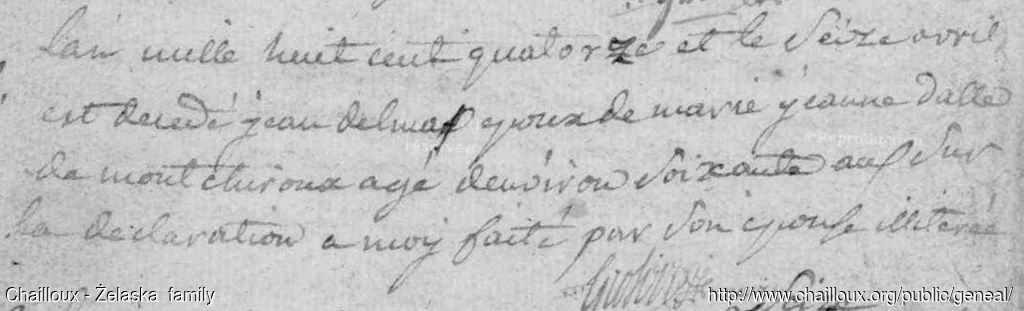 lan mille huit cent quatorze et le séize avril
est decedé jean delmas epoux de marie jeanne dalle
de montchiroux agé denviron soixante ans sur
la declaration a moy faité par son epouse illiterée
Chailloux - Żelaska family
http://www.chailloux.org/public/geneal/